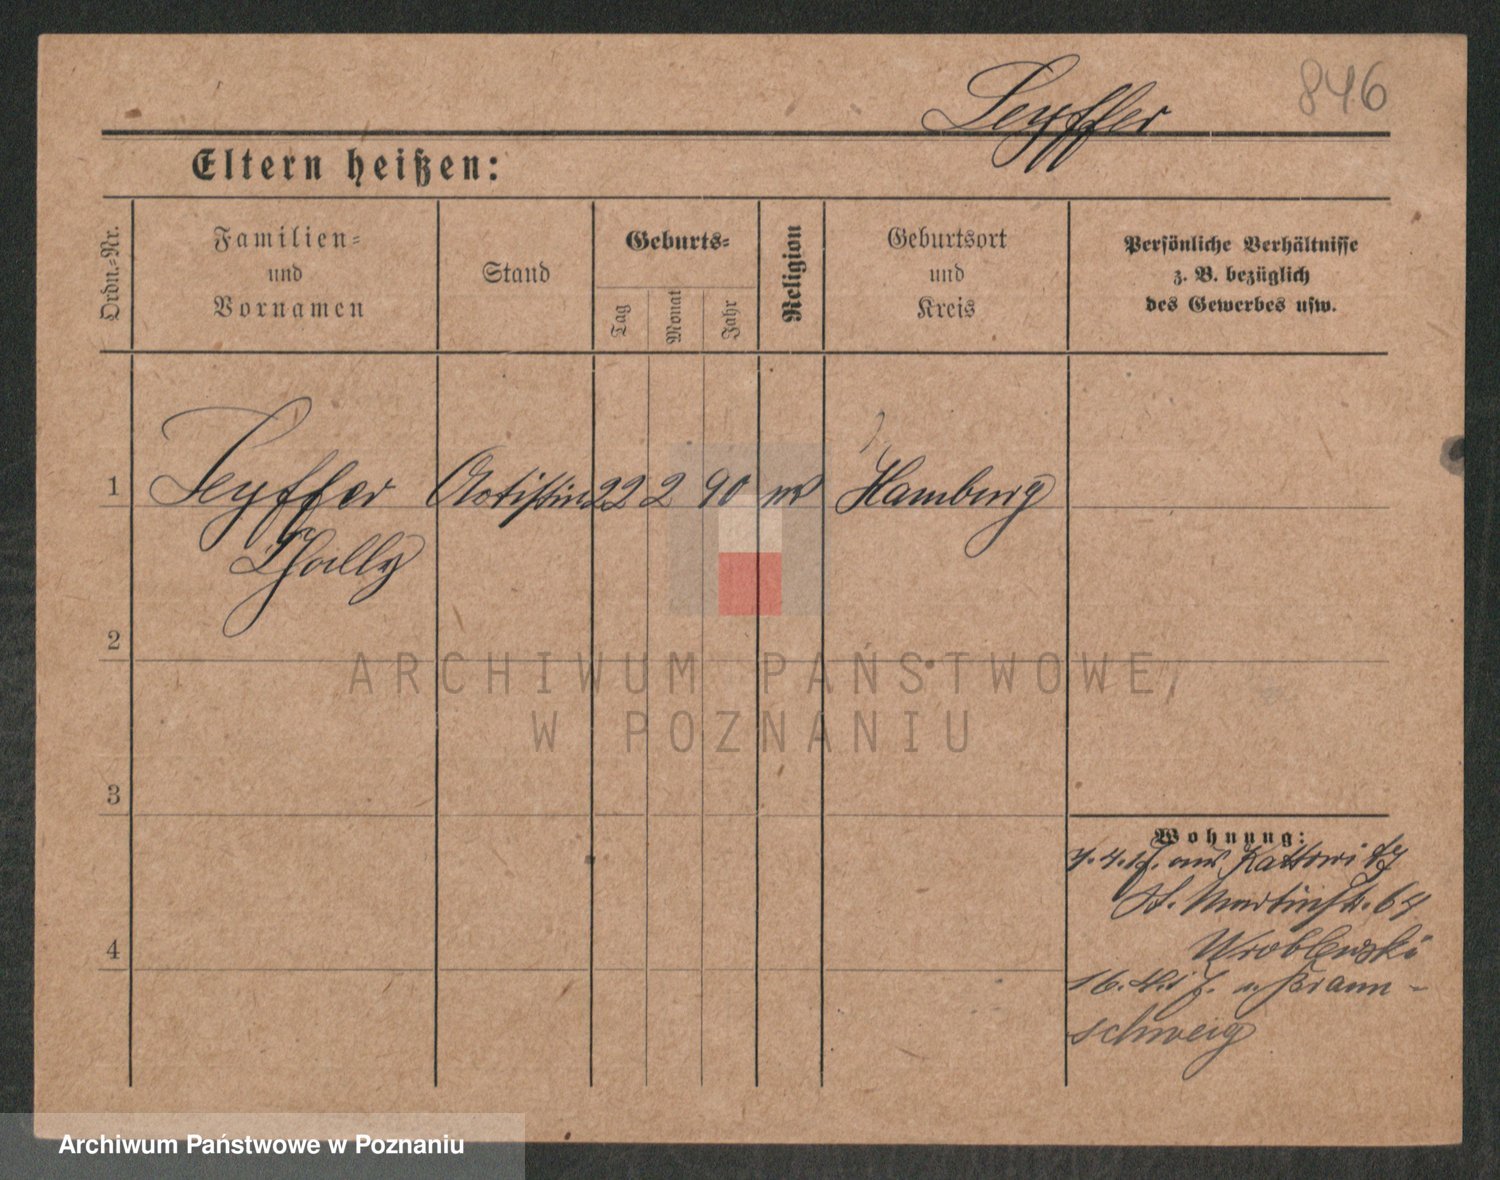 846
Seyffer
Eltern heißen:
Ordn.=Nr.
Familien=
und
Vornamen
Stand
Geburts=
Tag
Monat
Jahr
Religion
Geburtsort
und
Kreis
Persönliche Verhältnisse
z. B. bezüglich
des Gewerbes usw.
1 Seyffer Artistin 22 2 90 Hamburg
2
3
4
Wohnung:
aus Kattowitz
St. Martinstr. 64
Wroblewski
16. Braun-
schweig
ARCHIWUM PAŃSTWOWE
W POZNANIU
Archiwum Państwowe w Poznaniu